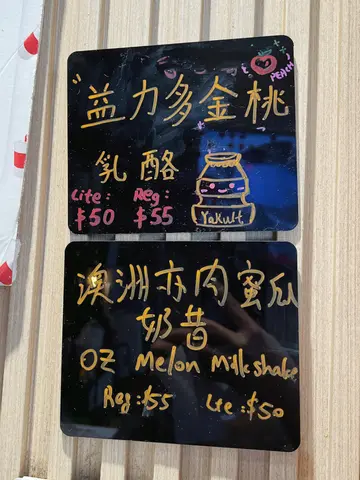 "益力多金桃
PEACH
乳酪
Lite: Reg:
$50 $55
Yakult
澳洲亦肉蜜瓜
奶昔
OZ Melon Milkshake
Reg:$55 Lte:$50